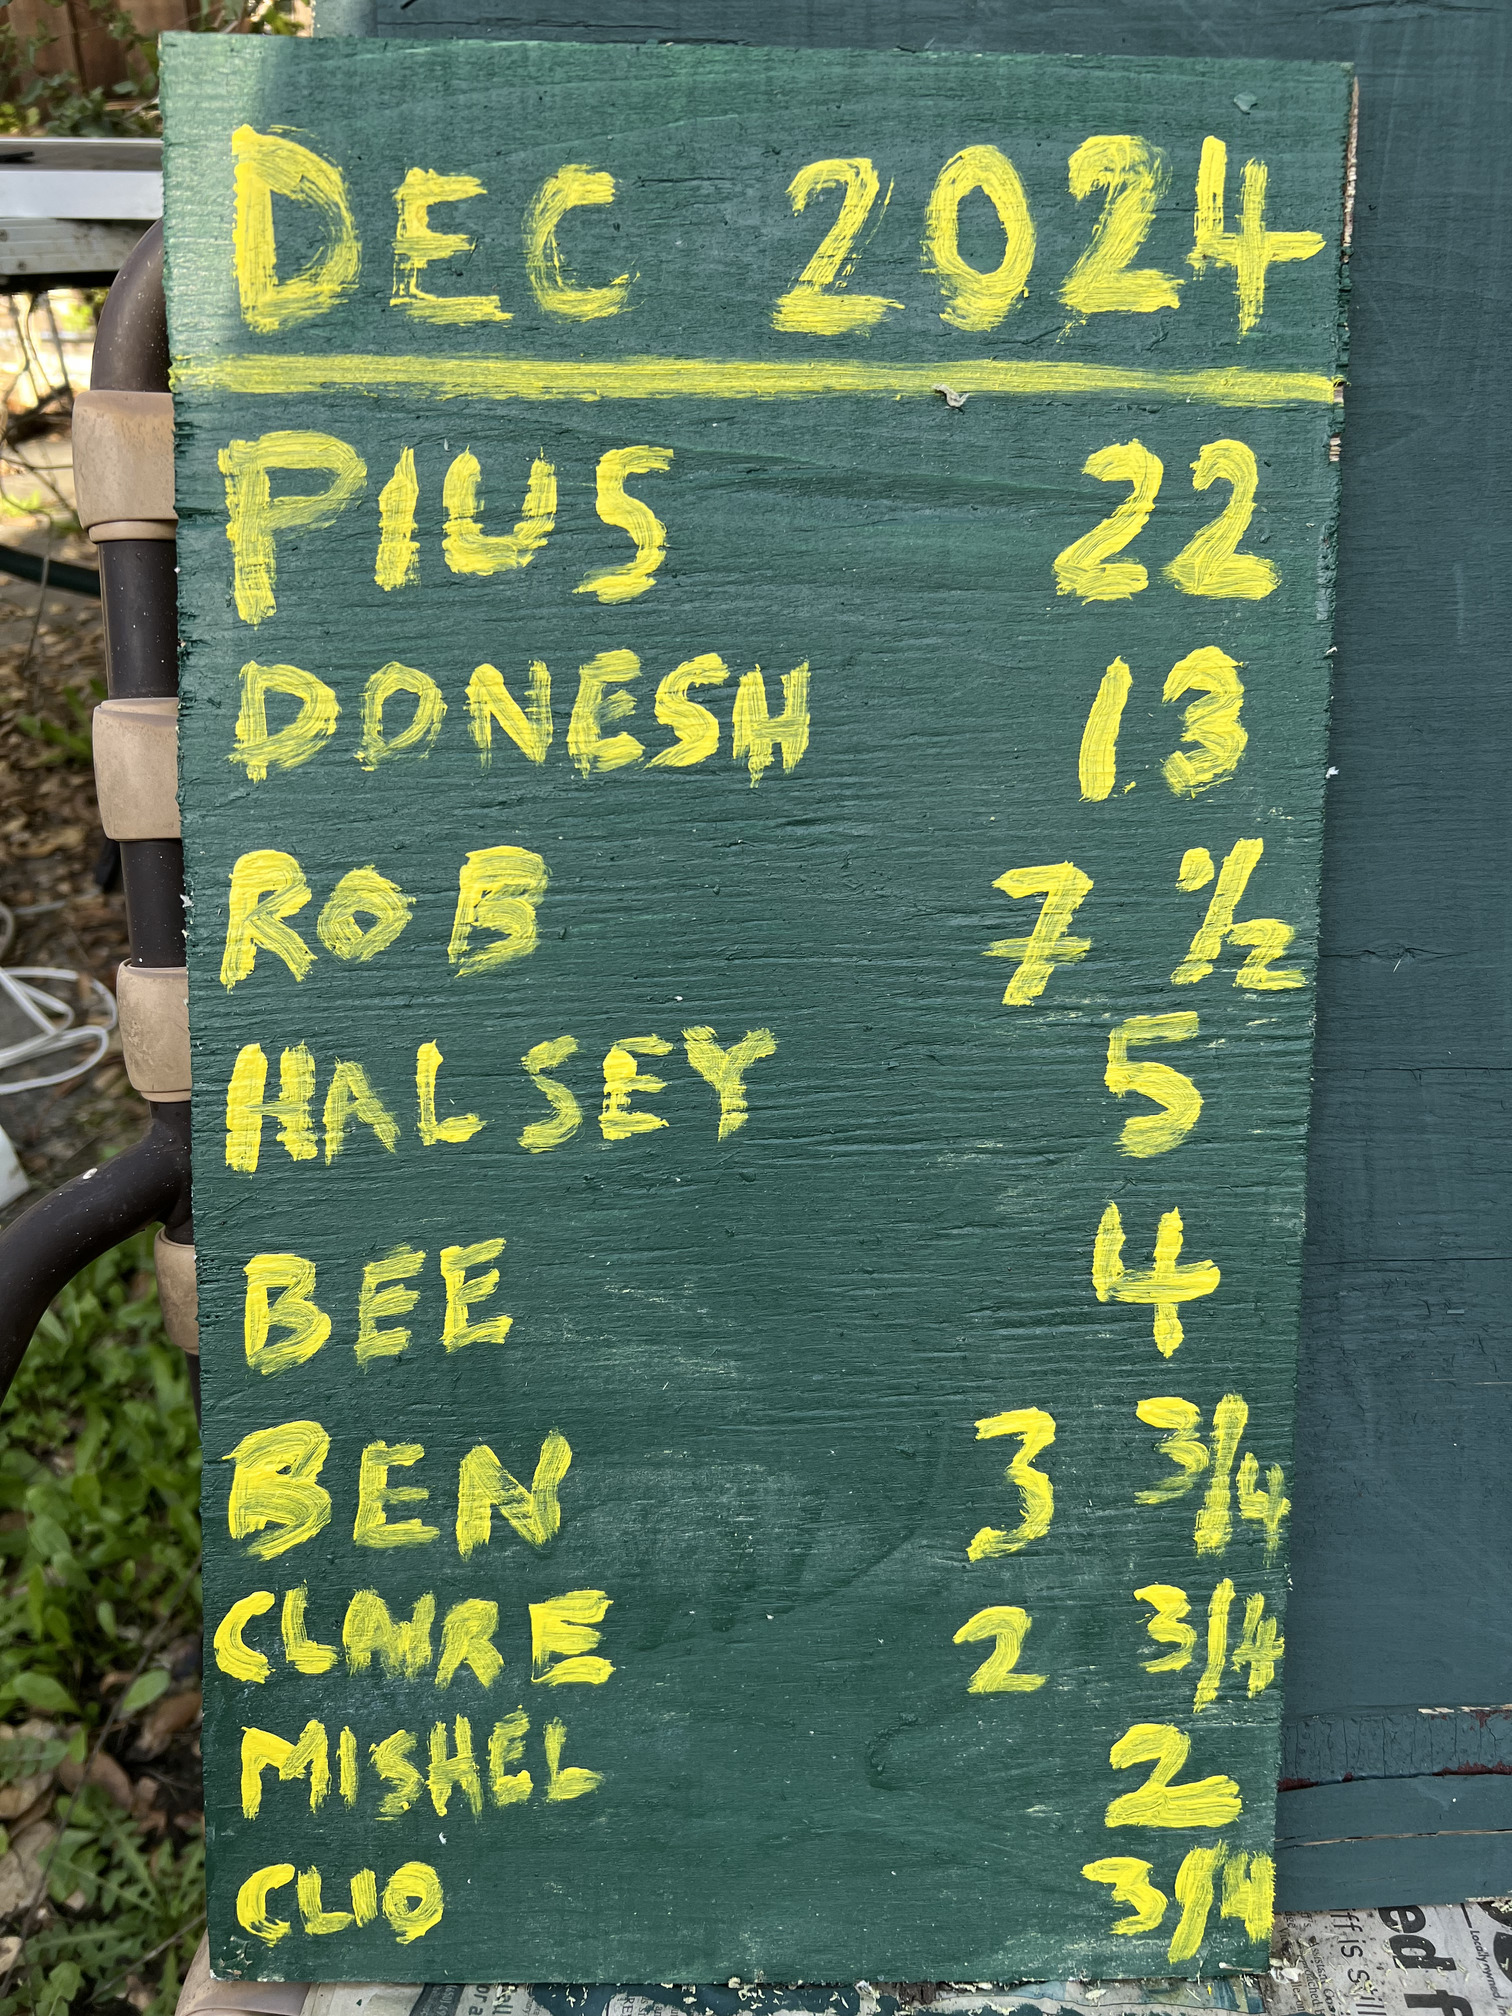 DEC 2024
PIUS 22
DONESH 13
ROB 7 1/2
HALSEY 5
BEE 4
BEN 3 3/4
CLAIRE 2 3/4
MISHEL 2
CLIO 3/4
ed f
Locally owned